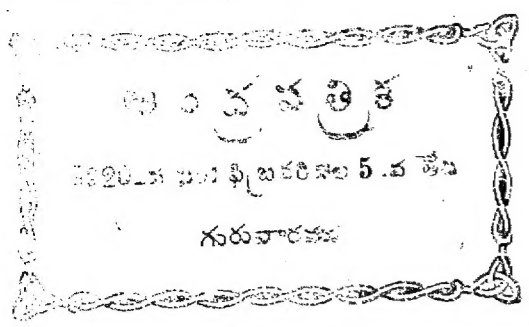 ఆంధ్రపత్రిక
1920-వ సం॥ ఫిబ్రవరినెల 5.వ తేది
గురువారము